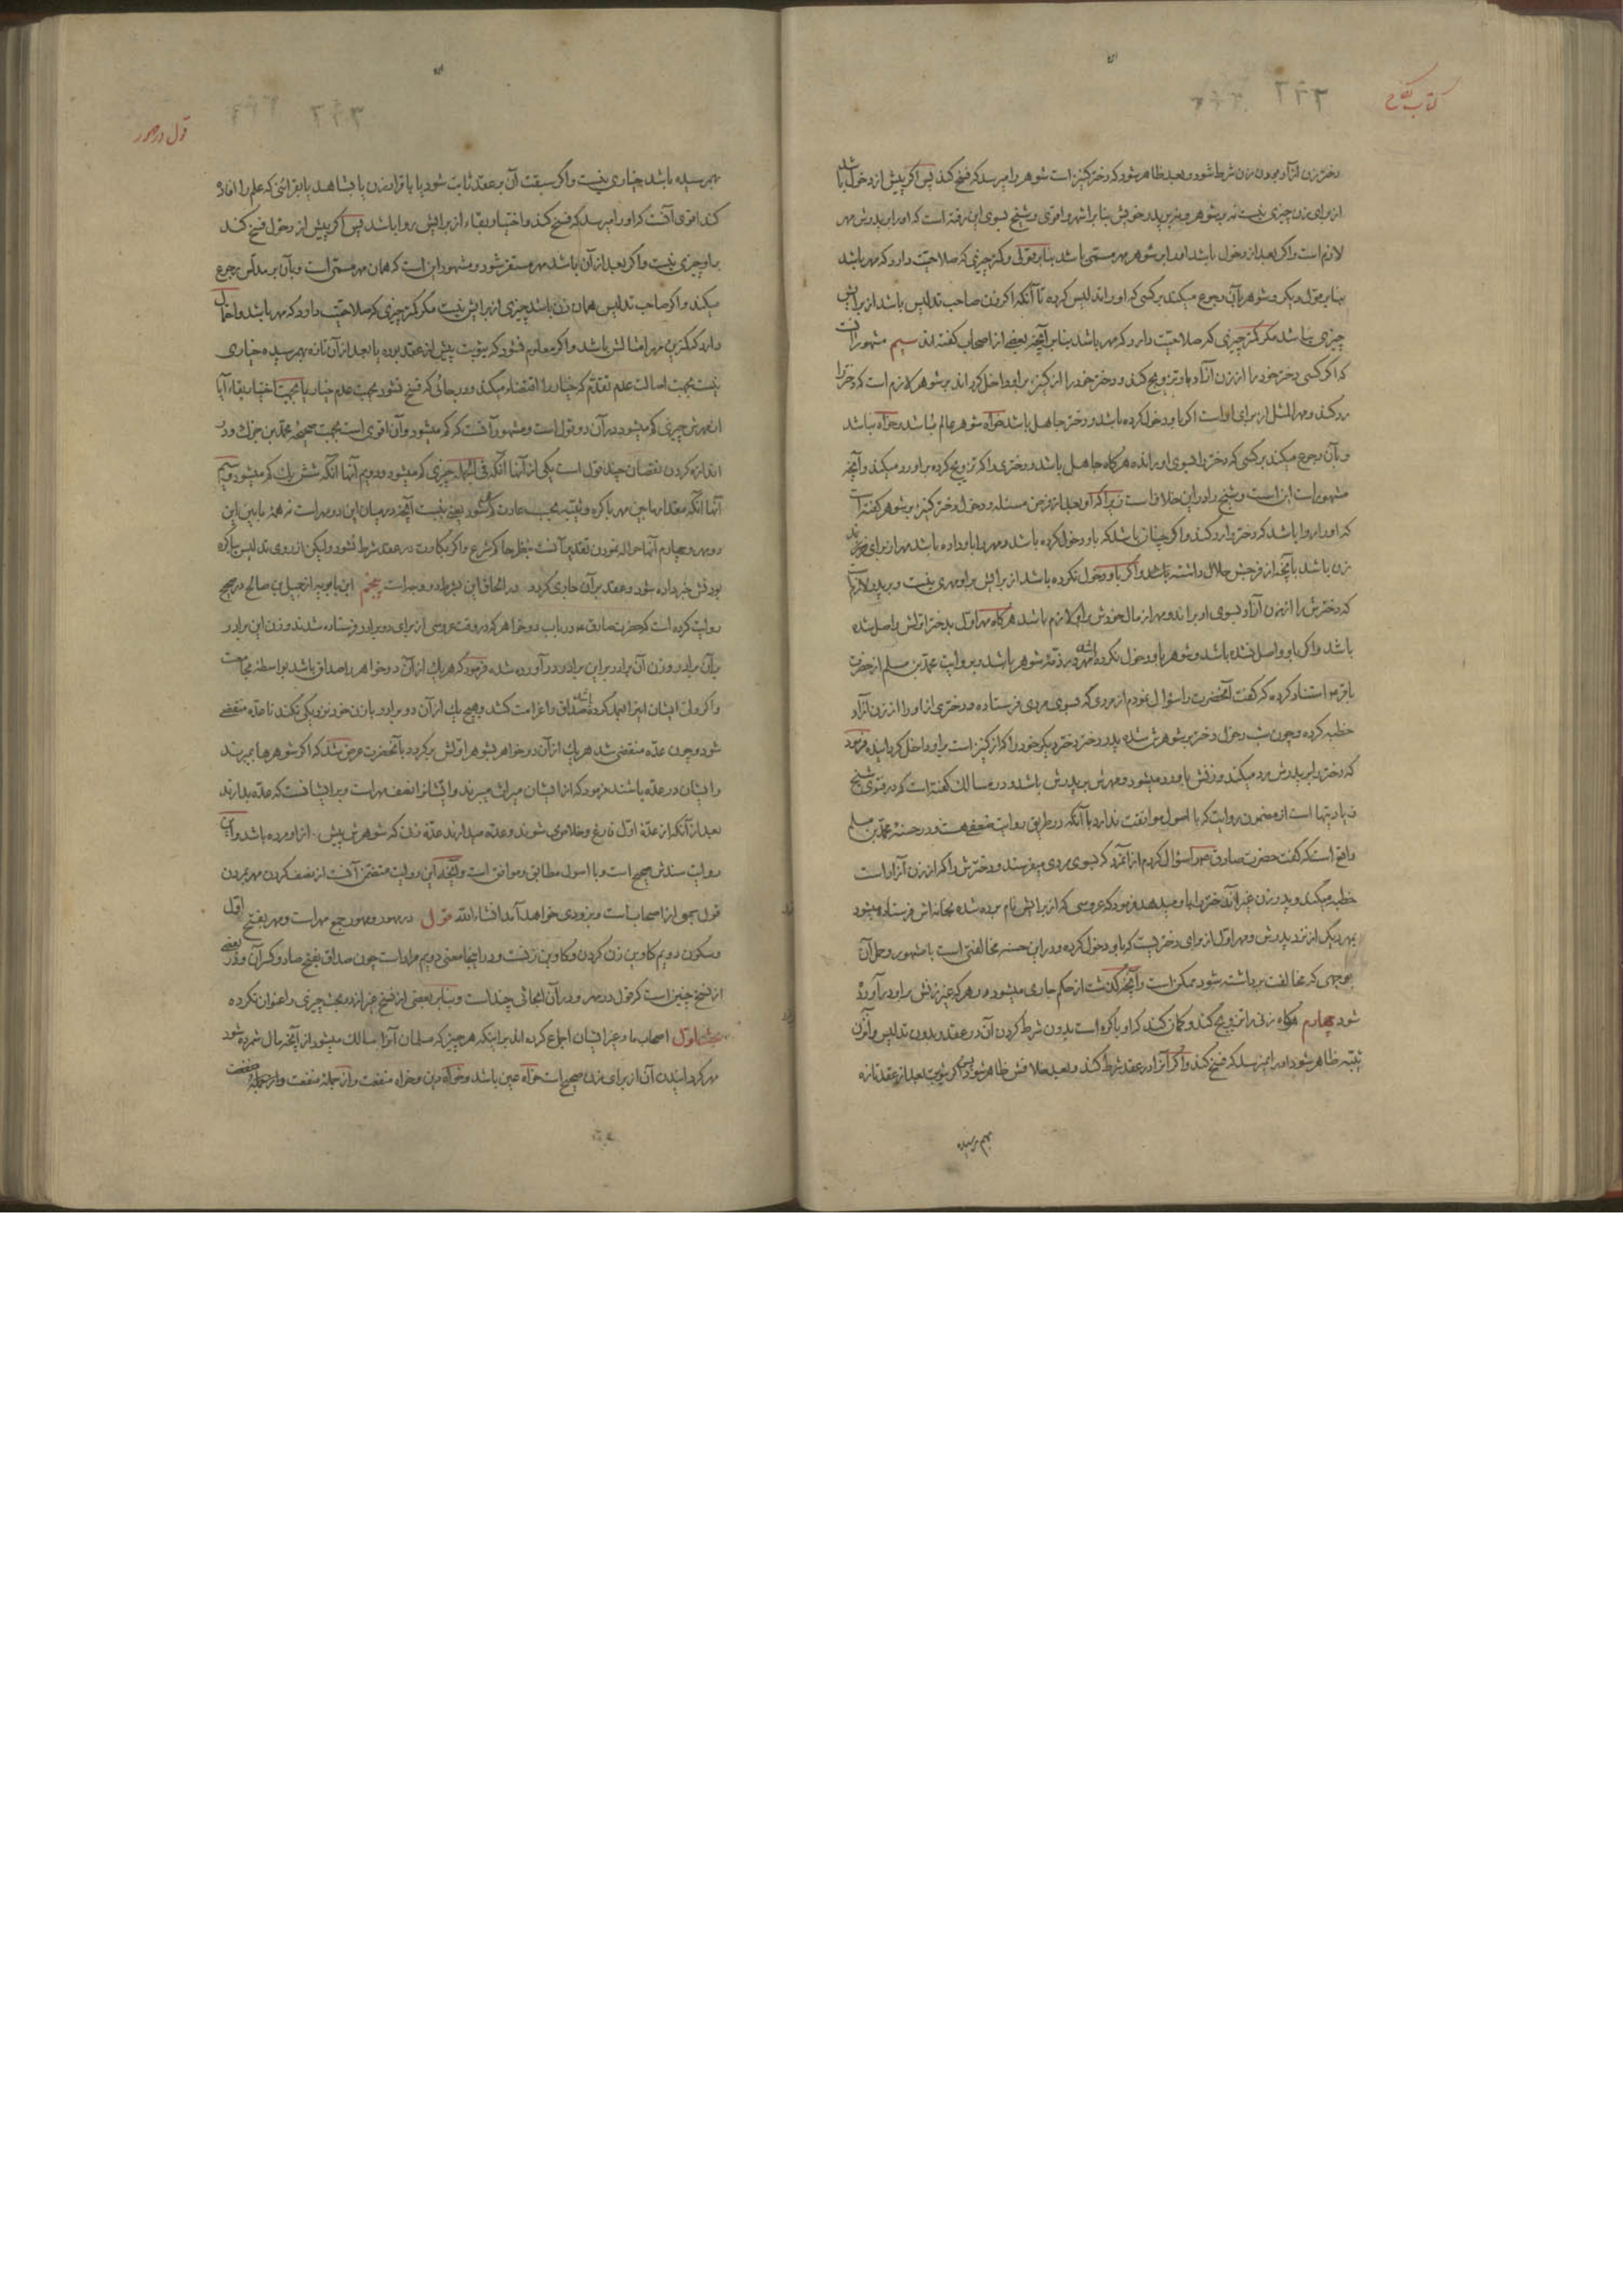 کتاب نکاح
دختر زن آزاد بودن زن شرط شود و بعد ظاهر شود که دختر کنیز است شوهر را میرسد که فسخ کند پس اگر پیش از دخول باشد
از برای زن چیزی نیست نه بر شوهر و نه بر پدر خویش بنا بر اشهر و اقوی و شیخ بسوی این رفته است که او را بر پدرش مهر
لازم است و اگر بعد از دخول باشد او را بر شوهر مهر مسمی باشد بنا بر قولی و کمتر چیزی که صلاحیت دارد که مهر باشد
بنا بر قول دیگر و شوهر بآن رجوع میکند بر کسی که او را تدلیس کرده تا آنکه اگر زن صاحب تدلیس باشد از برایش
چیزی نباشد مگر کمتر چیزی که صلاحیت دارد که مهر باشد بنا بر آنچه بعضی از اصحاب گفته‌اند سیم مشهور آنست
که اگر کسی دختر خود را از زن آزاد باو تزویج کند و دختر خود را از کنیز بر او داخل گرداند بر شوهر لازم است که دختر را
رد کند و مهر المثل از برای او است اگر باو دخول کرده باشد و دختر جاهل باشد خواه شوهر عالم باشد و خواه نباشد
و بآن رجوع میکند بر کسی که دختر را بسوی او رانده هرگاه جاهل باشد و دختری را که تزویج کرده بر او رد میکند و آنچه
مشهور است این است و شیخ را در این خلاف است زیرا که او بعد از فرض مسئله و دخول دختر کنیز بر شوهر گفته است
که او را روا باشد که دختر را رد کند و اگر چنان باشد که باو دخول کرده باشد و مهر را باو داده باشد مهر از برای
زن باشد بآنچه از فرجش حلال داشته باشد و اگر باو دخول نکرده باشد از برایش بر او مهری نیست و بر پدر لازم است
که دخترش را از زن آزاد بسوی او براند و مهر از مال خودش بر او لازم باشد هرگاه مهر اول بدختر اولش واصل شده
باشد و اگر باو واصل نشده باشد و شوهر باو دخول نکرده باشد مهر در ذمه شوهر باشد و بروایت محمد بن مسلم از حضرت
باقر ع استناد کرده که گفت آنحضرت را سؤال نمودم از مردی که بسوی مردی فرستاده و دختری از او را از زن آزاد
خطبه کرده و چون شب دخول دختر بر شوهرش شده پدر دختر دختر دیگر خود را که از کنیز است بر او داخل گردانیده فرمود
که دختر را بر پدرش رد میکند و زنش باو رد میشود و مهرش بر پدرش باشد و در مسالک گفته است که در فتوی شیخ
زیادتیها است از مضمون روایت که با اصول موافقت ندارد با آنکه در طریق روایت ضعفی هست و در حسنه محمد بن مسلم
واقع است که گفت حضرت صادق ع را سؤال کردم از آنمرد که بسوی مردی میفرستد و دخترش را که از زن آزاد است
خطبه میکند و پدر زن غیر آن دختر را باو میدهد فرمود که عروسی که از برایش نام برده شده بخانه‌اش فرستاده میشود
بمهر دیگر از نزد پدرش و مهر اول از برای دختریست که باو دخول کرده و در این حسنه مخالفتی است با مشهور و حمل آن
بوجهی که مخالفت برداشته شود ممکن است و آنچه گذشت از حکم جاری میشود در هر که غیر زنش بر او در آورده
شود چهارم هرگاه زنی را تزویج کند و گمان کند که او باکره است بدون شرط کردن آن در عقد و بدون تدلیس و آن زن
ثیبه ظاهر شود او را نمیرسد که فسخ کند و اگر آنرا در عقد شرط کند و بعد خلافش ظاهر شود پس اگر ثیوبت بعد از عقد تازه
بهم رسیده
قول در مهور
بهم رسیده باشد خیاری نیست و اگر سبقت آن بر عقد ثابت شود یا باقرار زن یا بشاهد یا بقرائنی که علم را افاده
کند اقوی آنست که او را میرسد که فسخ کند و اختیار بقاء از برایش روا باشد پس اگر پیش از دخول فسخ کند
بر او چیزی نیست و اگر بعد از آن باشد مهر مستقر شود و مشهور این است که همان مهر مسمی است و بآن بر مدلس رجوع
میکند و اگر صاحب تدلیس همان زن باشد چیزی از برایش نیست مگر کمتر چیزی که صلاحیت دارد که مهر باشد و احتمال
دارد که کمترین مهر امثالش باشد و اگر معلوم نشود که ثیوبت پیش از عقد بوده یا بعد از آن تازه بهم رسیده خیاری
نیست بجهت اصالت عدم تقدم که خیار را اقتضاء میکند و در جائی که فسخ نشود بجهت عدم خیار یا بجهت اختیار بقاء آیا
از مهرش چیزی کم میشود در آن دو قول است و مشهور آنست که کم میشود و آن اقوی است بجهت صحیحه محمد بن جزک و در
اندازه کردن نقصان چند قول است یکی از آنها آنکه فی الجمله چیزی کم میشود و دویم آنها آنکه شش یک کم میشود و سیم
آنها آنکه مقدار ما بین مهر باکره و ثیبه بحسب عادت کم شود یعنی نسبت آنچه در میان این دو مهر است نه همه ما بین این
دو مهر و چهارم آنها حواله نمودن تقدیر آنست بنظر حاکم شرع و اگر بکارت در عقد شرط نشود ولیکن از روی تدلیس بباکره
بودنش خبر داده شود و عقد بر آن جاری گردد در الحاق این بشرط دو وجه است پنجم ابن بابویه از جمیل بن صالح در صحیح
روایت کرده است که حضرت صادق ع در باب دو خواهر که در وقت عروسی از برای دو برادر فرستاده شدند و زن این برادر
بر آن برادر و زن آن برادر بر این برادر در آورده شده فرمود که هر یک از آن دو خواهر را صداق باشد بواسطه مجامعت
و اگر ولی ایشان اینرا بعمد کرده باشد صداق را غرامت کشد و هیچ یک از آن دو برادر با زن خود نزدیکی نکند تا عده منقضی
شود و چون عده منقضی شد هر یک از آن دو خواهر بشوهر اولش برگردد بآنحضرت عرض شد که اگر شوهرها بمیرند
و ایشان در عده باشند فرمود که از ایشان میراث میبرند و ایشانرا نصف مهر است و بر ایشانست که عده بدارند
بعد از آنکه از عده اول فارغ و خلاص شوند و عده میدارند عده زنی که شوهرش پیش از او مرده باشد و این
روایت سندش صحیح است و با اصول مطابق و موافق است و آنچه این روایت متضمن آنست از نصف کردن مهر بمردن
قول بعضی از اصحاب است و بزودی خواهد آمد انشاء الله قول در مهور و مهور جمع مهر است و مهر بفتح اول
و سکون دویم کاوین زن کردن و کاوین زنست و در اینجا معنی دویم مراد است چون صداق بفتح صاد و کسر آن و در بعضی
از نسخ چنین است که قول در مهر و در آن ابحاثی چند است و بنا بر بعضی از نسخ غیر از دو بحث چیزی را عنوان نکرده
بحث اول اصحاب ما و غیر ایشان اجماع کرده‌اند بر اینکه هر چیز که مسلمان آنرا مالک میشود از آنچه مال شمرده شود
مهر گردانیدن آن از برای زن صحیح است خواه عین باشد و خواه دین و خواه منفعت و از جمله منفعت و از جمله منفعت